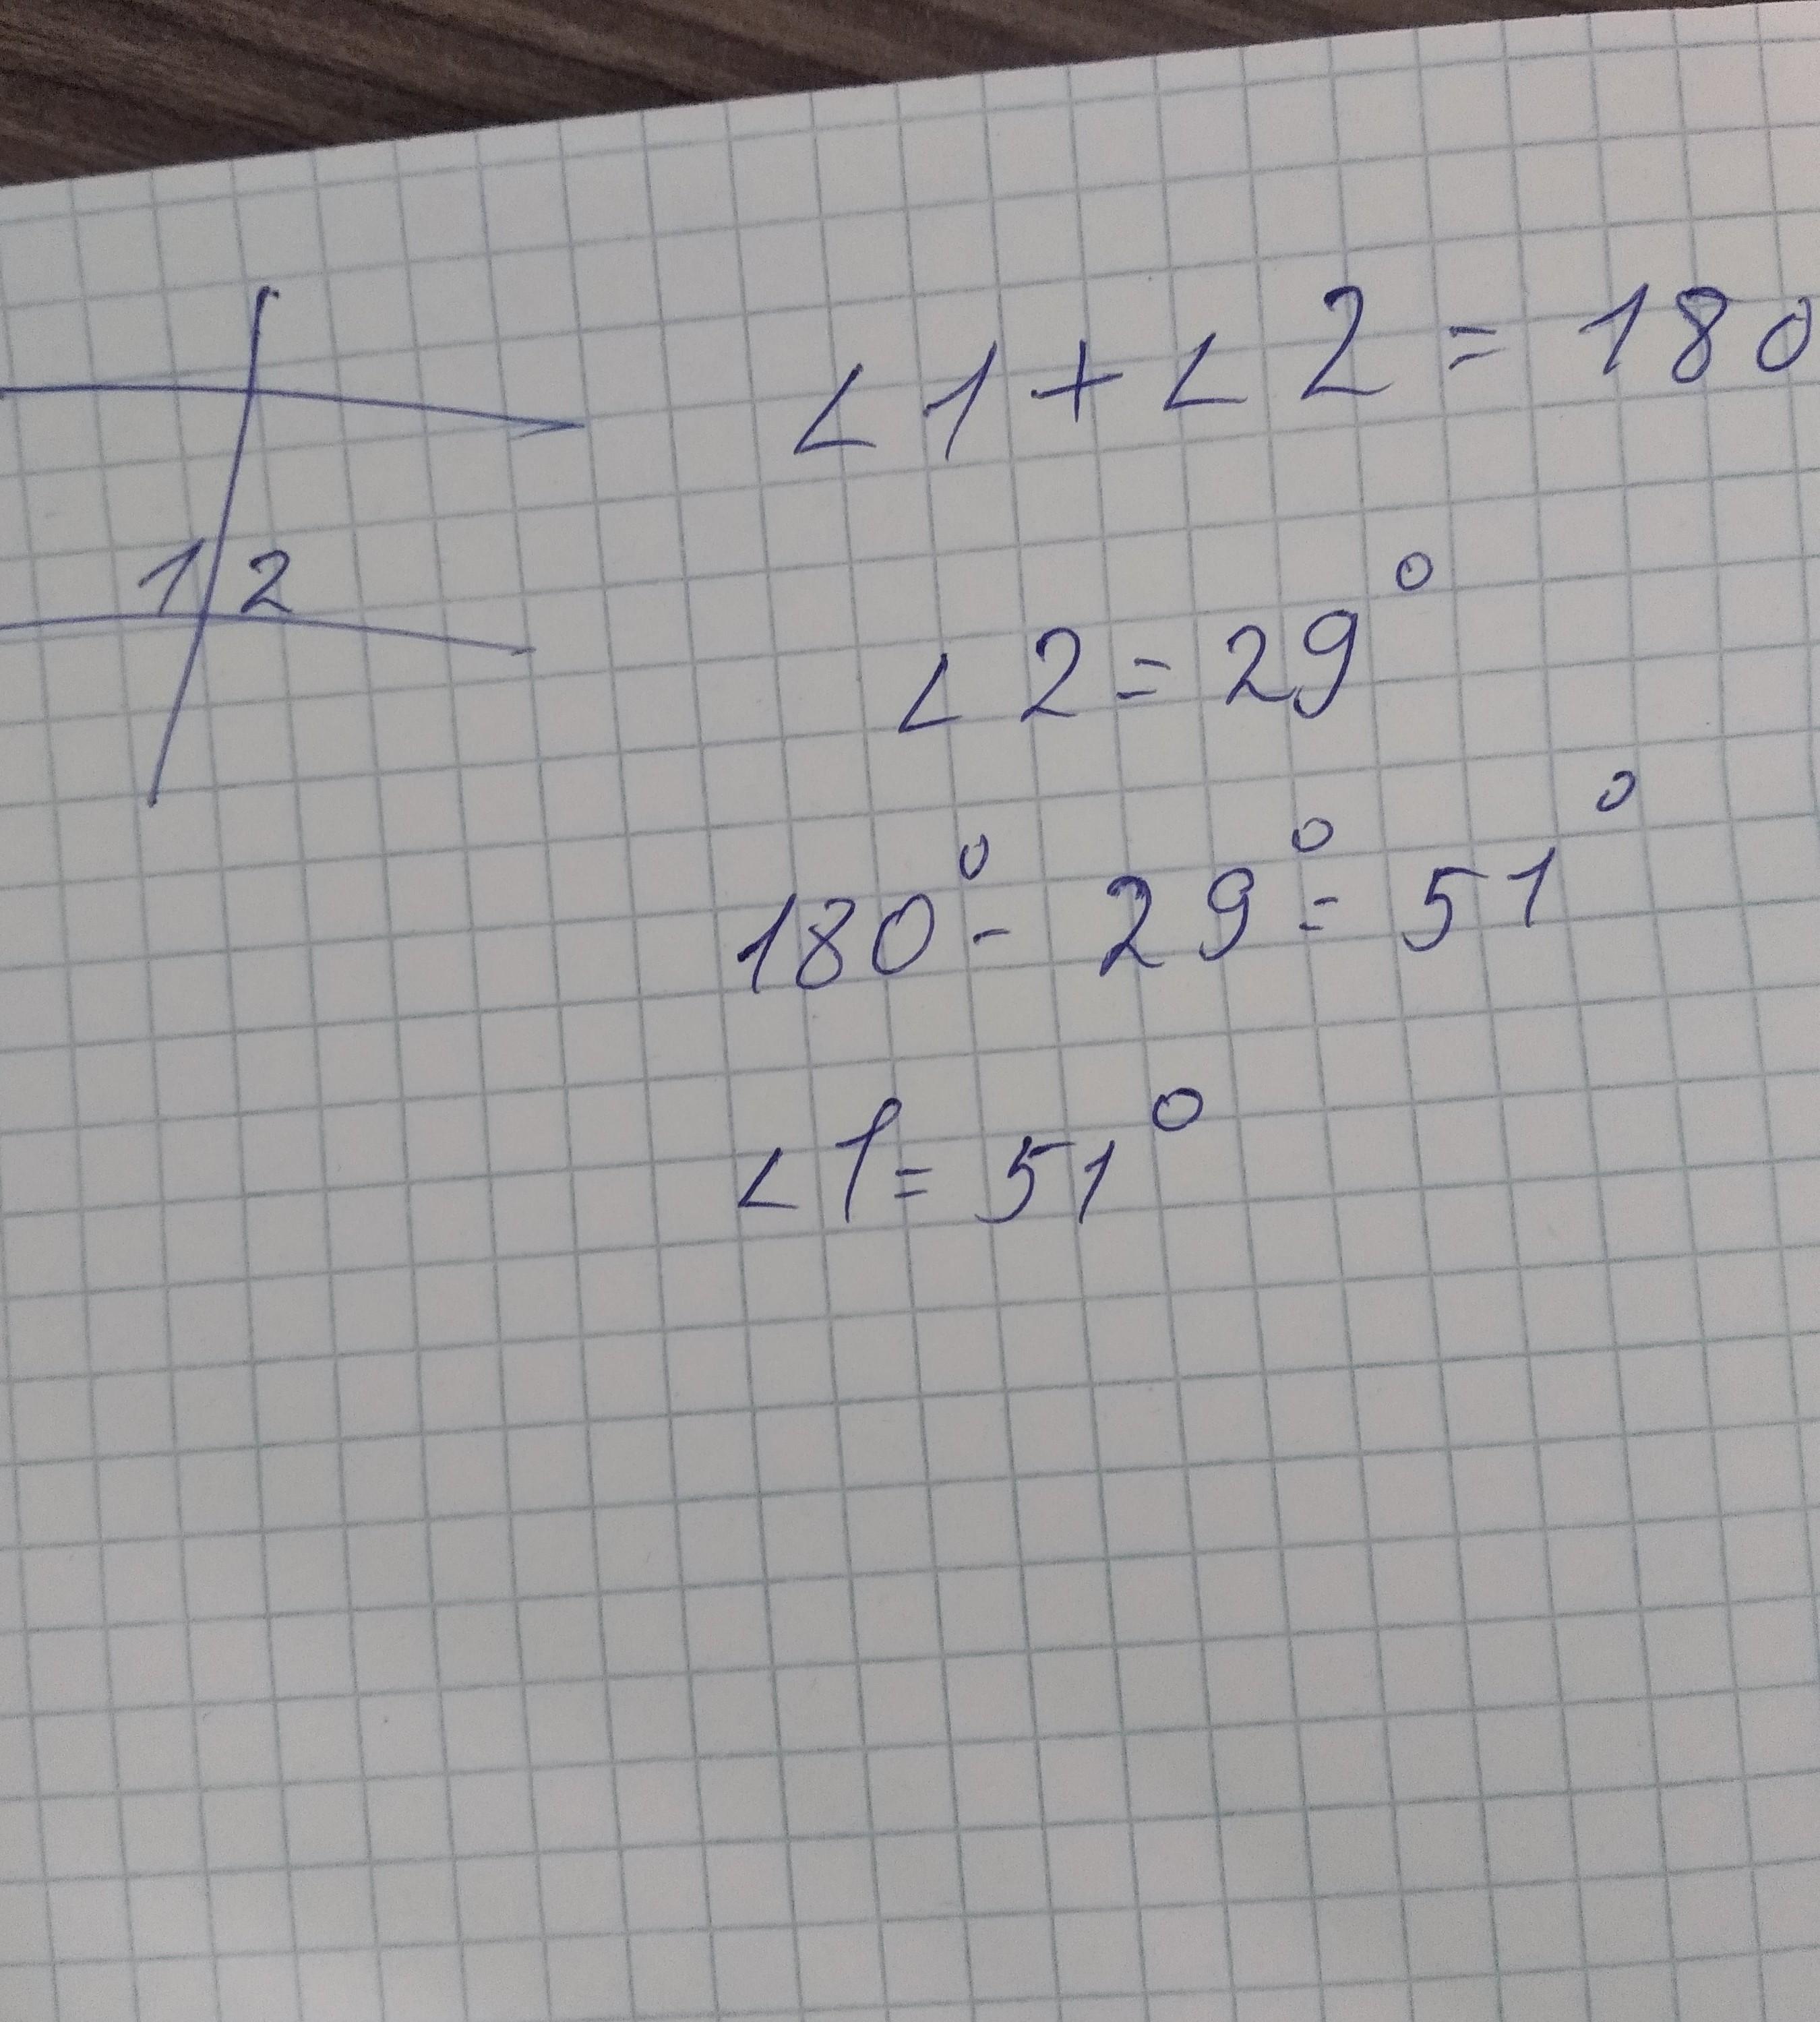 ∠1+∠2=180
1 2
∠2=29°
180°-29°=51°
∠1=51°